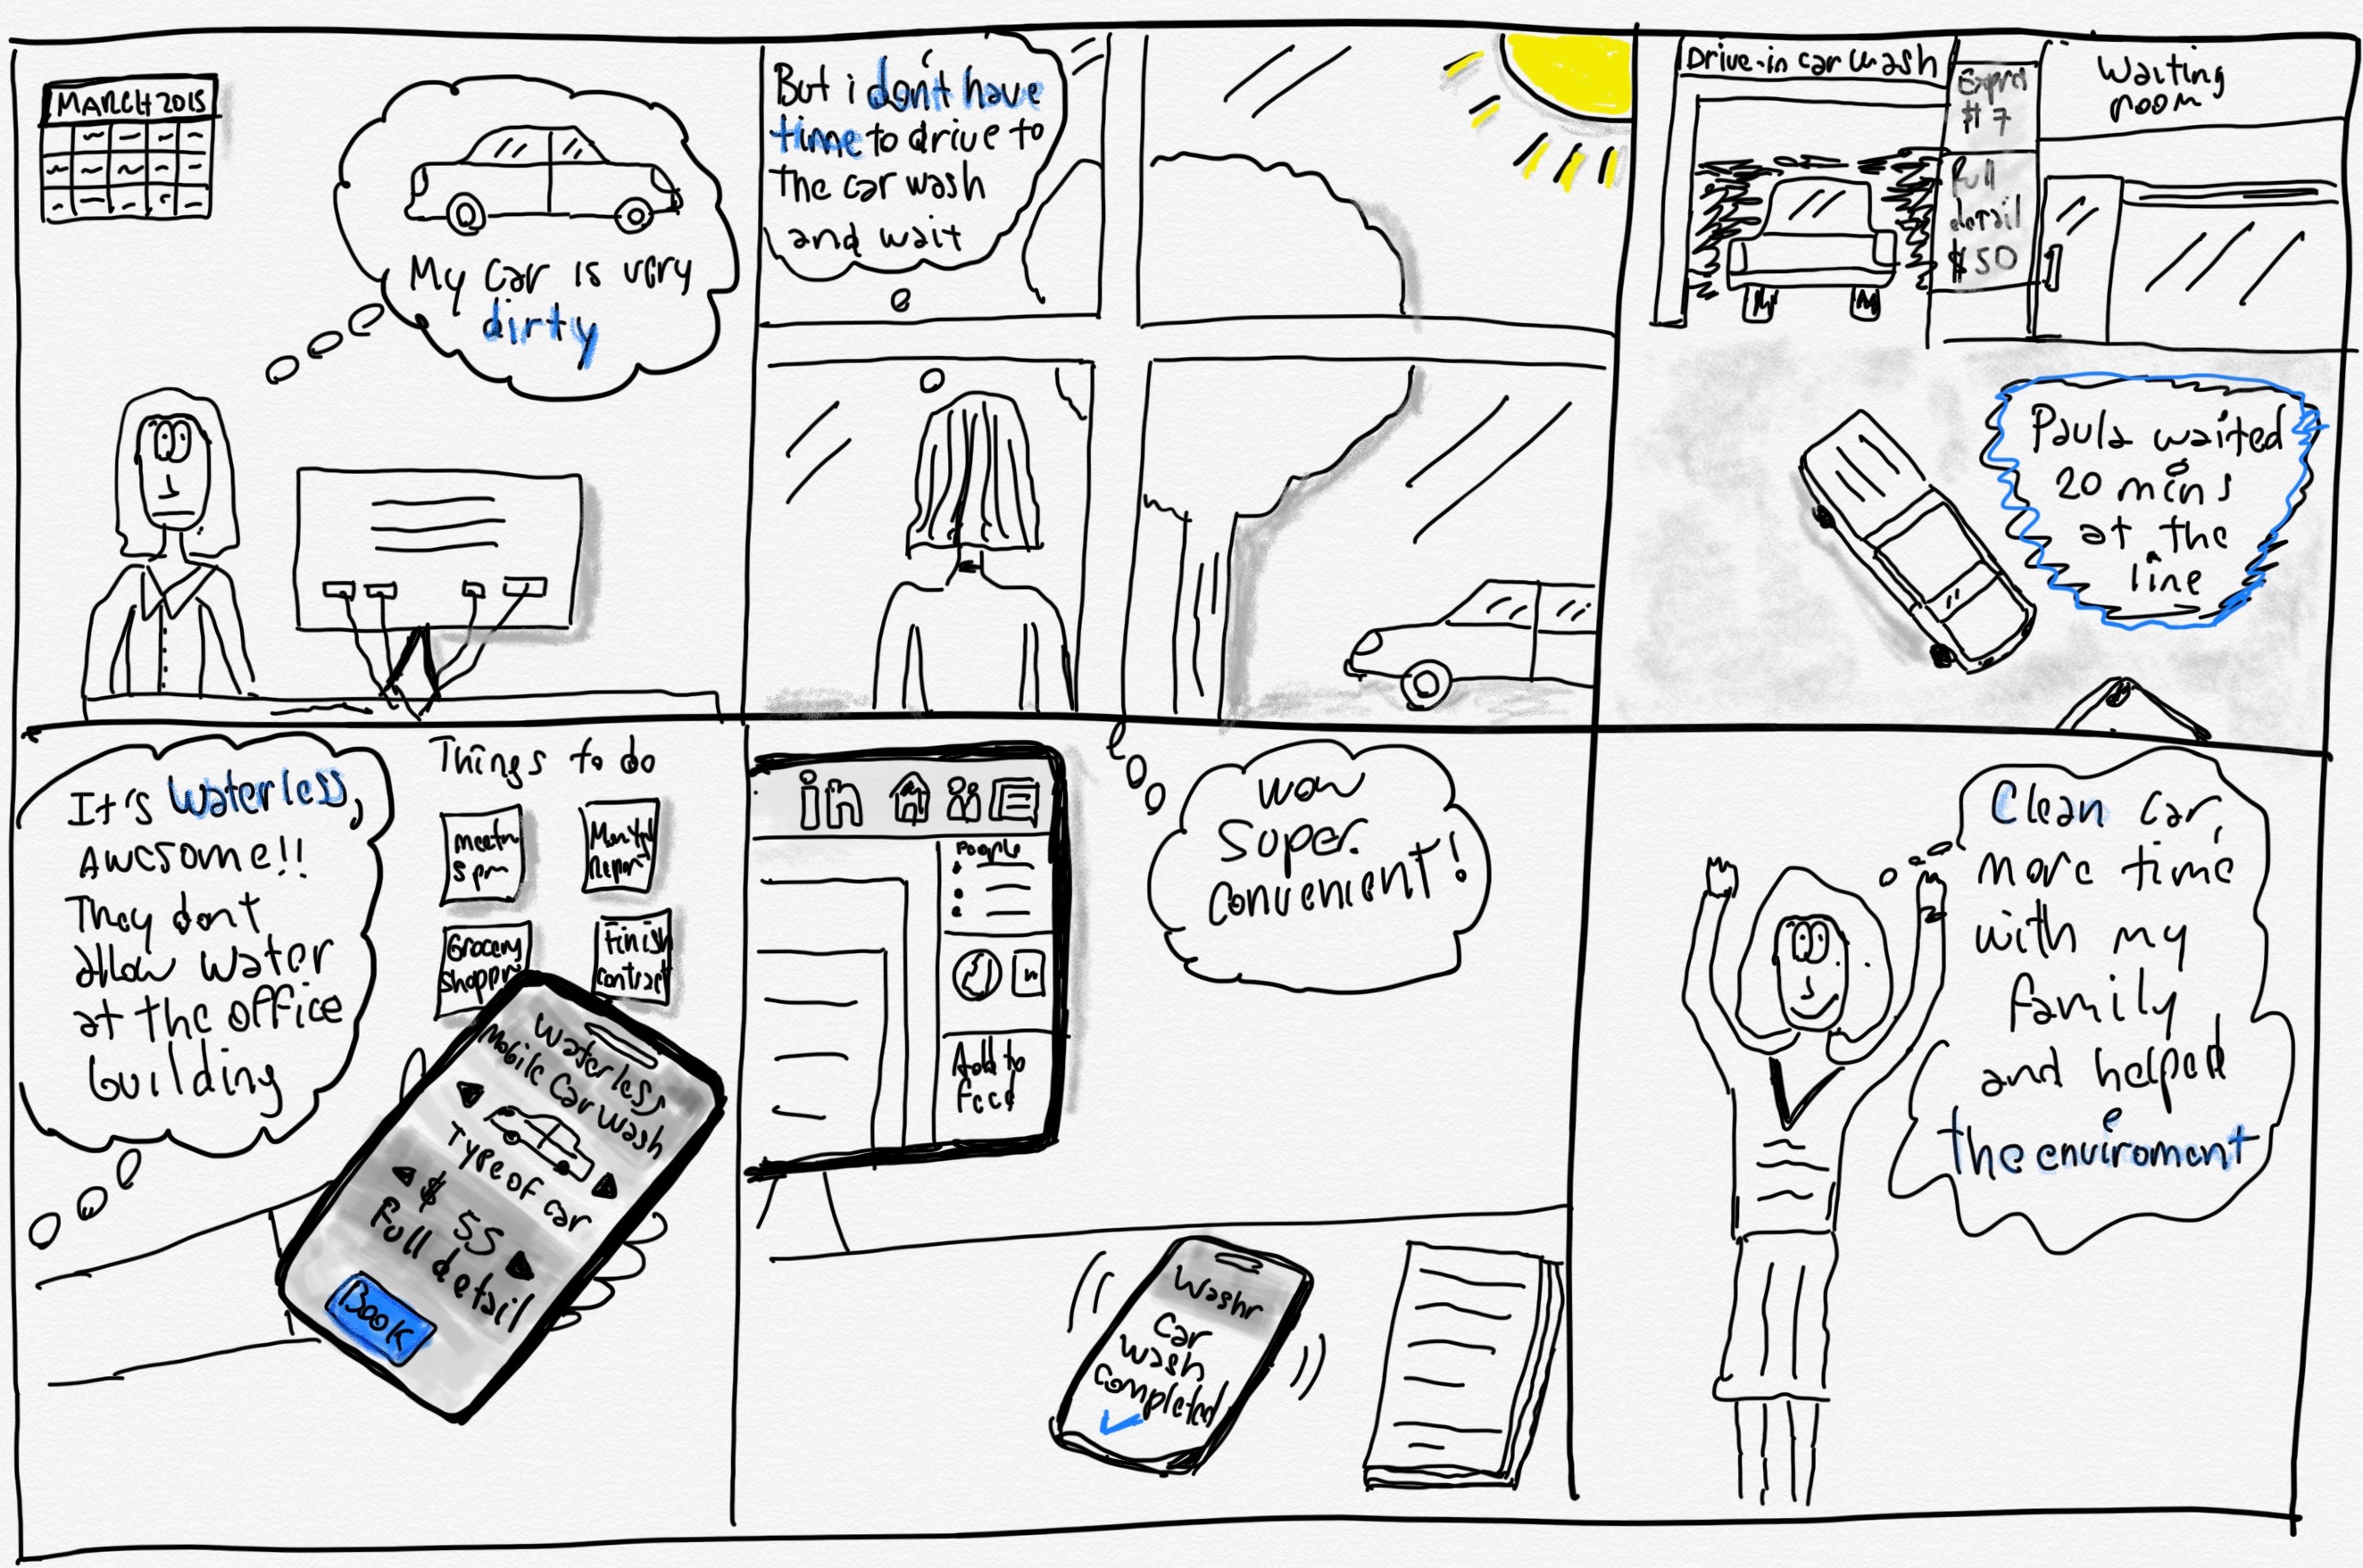 MARCH 2015
My car is very
dirty
But i don't have
time to drive to
the car wash
and wait
Drive-in car wash
$ 7
Full
detail
$ 50
Waiting
room
Paula waited
20 mins
at the
line
It's waterless,
Awesome!!
They dont
allow water
at the office
building
Things to do
5 pm
Report
Grocery
Finish
contract
Waterless
Mobile Car Wash
Type of car
$ 55
Full detail
Book
in
People
Add to
feed
Wow
super
convenient!
Washr
Car
wash
completed
Clean car,
more time
with my
family
and helped
the enviroment